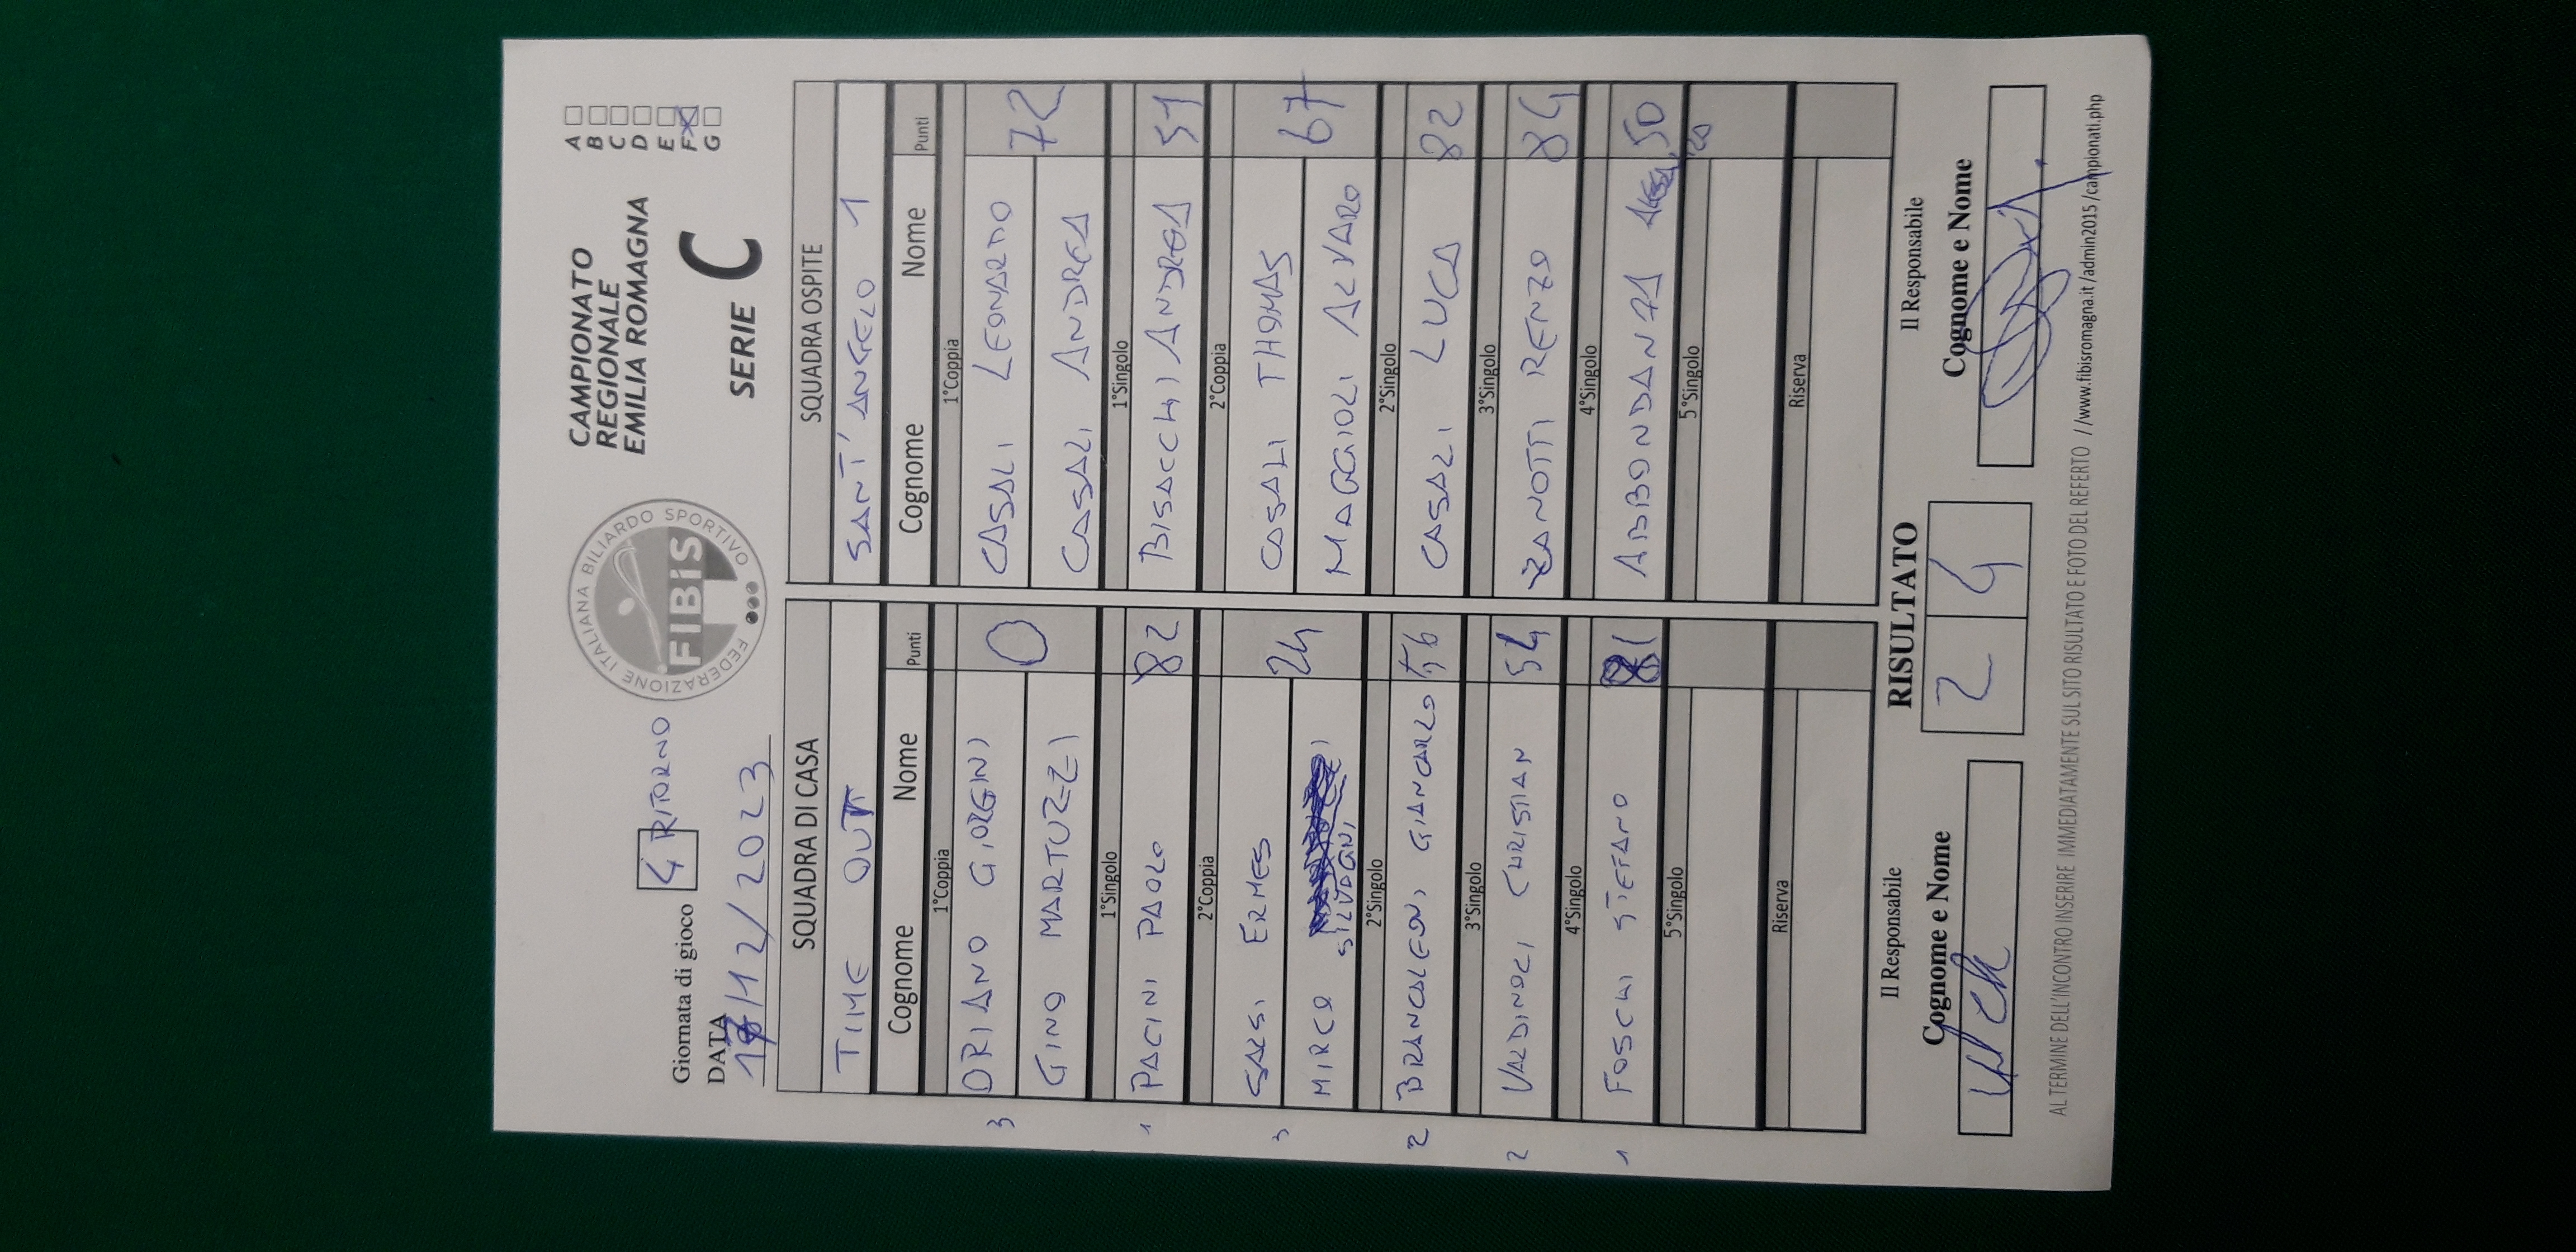 Giornata di gioco 4 RITORNO
DATA
/12/2023
FEDERAZIONE ITALIANA BILIARDO SPORTIVO
FIBIS
CAMPIONATO
REGIONALE
EMILIA ROMAGNA
SERIE C
A
B
C
D
E
F X
G
SQUADRA DI CASA
TIME OUT
Cognome Nome Punti
1°Coppia
3 ORIANO GIORGINI 0
GINO MARTUZZI
1°Singolo
1 PACINI PAOLO 82
2°Coppia
3 SALSI ERMES 24
MIRCO SILVAGNI
2°Singolo
2 BRANCALEONI GIANCARLO 56
3°Singolo
2 VALDINOCI CHRISTIAN 54
4°Singolo
1 FOSCHI STEFANO 81
5°Singolo
Riserva
SQUADRA OSPITE
SANT'ANGELO 1
Cognome Nome Punti
1°Coppia
CASALI LEONARDO 72
CASALI ANDREA
1°Singolo
BISACCHI ANDREA 51
2°Coppia
CASALI THOMAS 67
MAGGIOLI ALVARO
2°Singolo
CASALI LUCA 82
3°Singolo
ZANOTTI RENZO 84
4°Singolo
ABBONDANZA 50
5°Singolo
Riserva
Il Responsabile
Cognome e Nome
RISULTATO
2 4
Il Responsabile
Cognome e Nome
AL TERMINE DELL'INCONTRO INSERIRE IMMEDIATAMENTE SUL SITO RISULTATO E FOTO DEL REFERTO //www.fibisromagna.it/admin2015/campionati.php